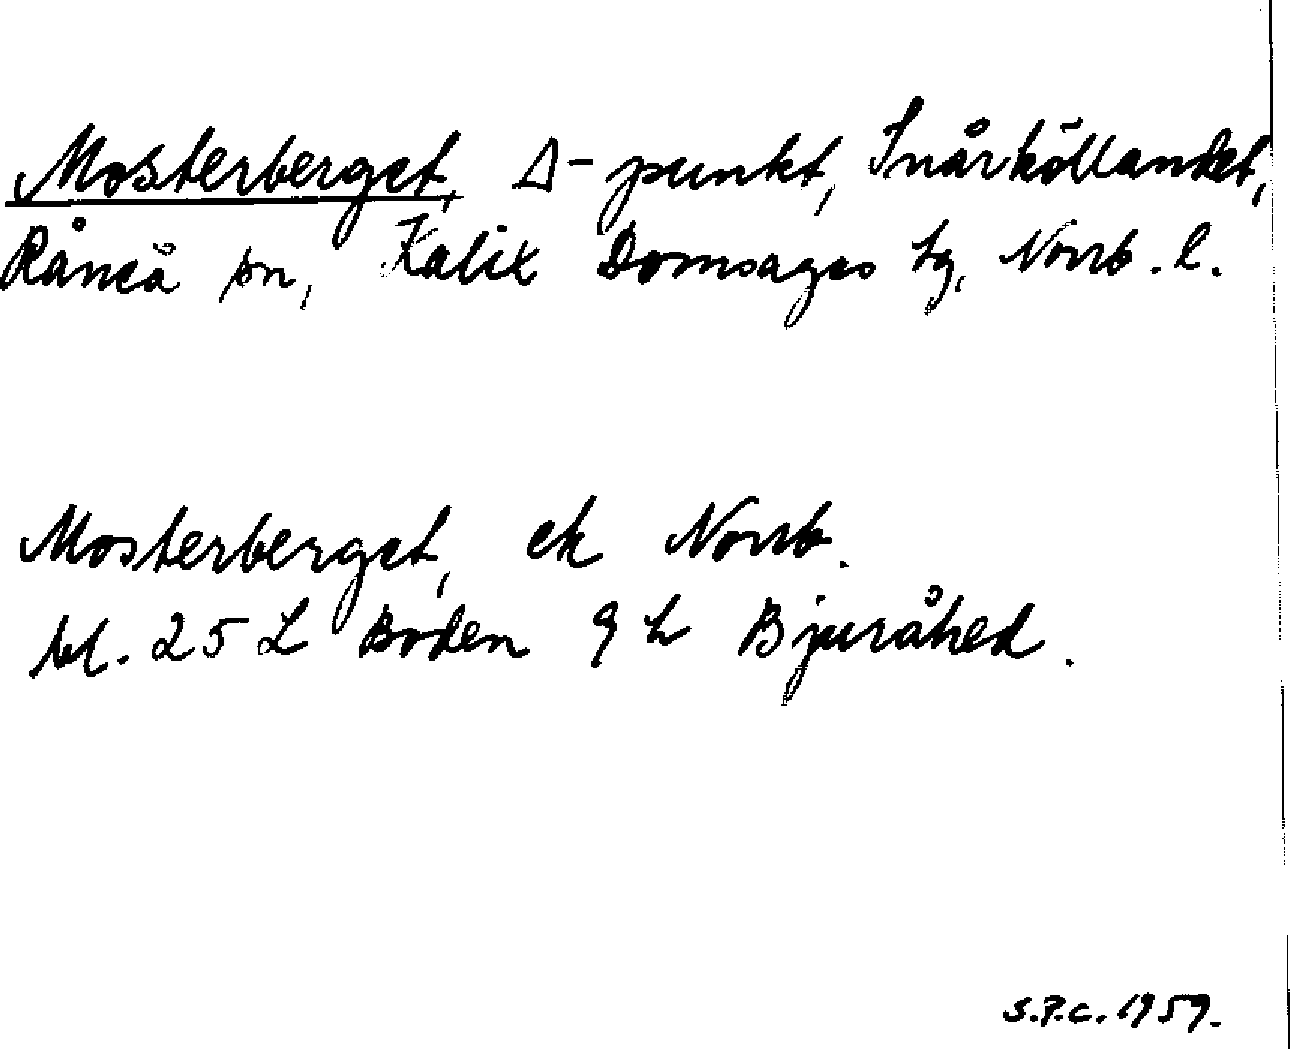 Mosterberget, Δ-punkt, Snårköllandet,
Råneå sn, Kalix Domsagas tg, Norrb. l.
Mosterberget, ek Norrb.
bl. 25 L Boden 9 h Bjuråhed.
S.P.C. 1959.